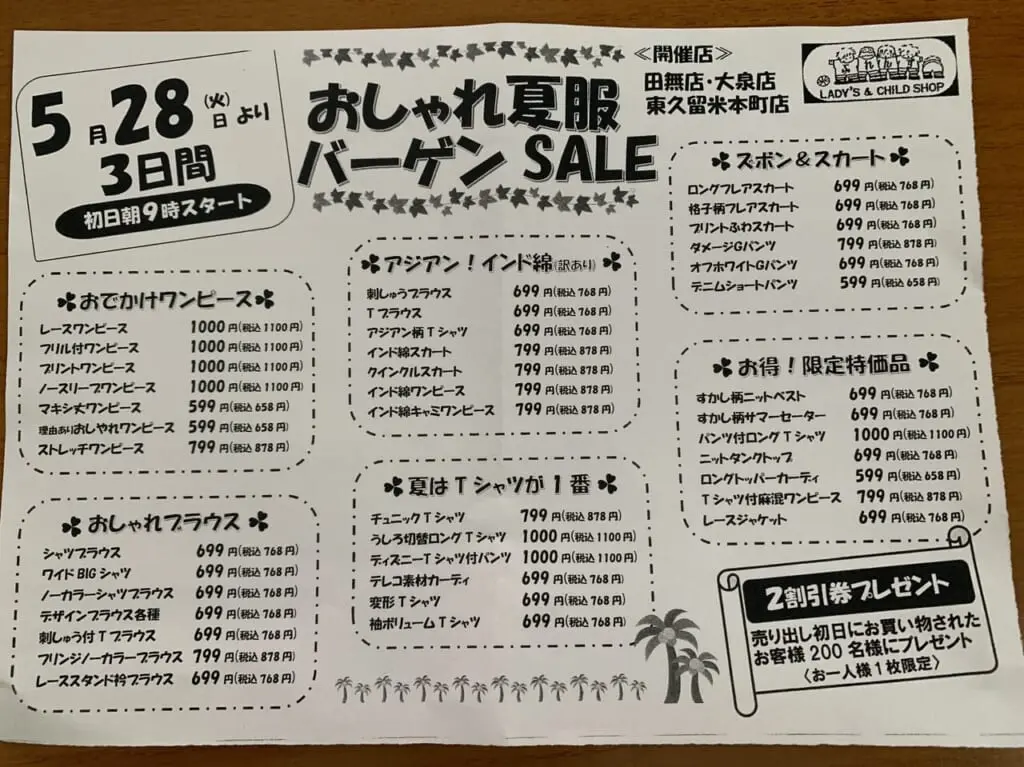 5月28日(火)より
3日間
初日朝9時スタート
おしゃれ夏服
バーゲン SALE
≪開催店≫
田無店・大泉店
東久留米本町店
LADY'S & CHILD SHOP
おでかけワンピース
レースワンピース 1000円(税込1100円)
フリル付ワンピース 1000円(税込1100円)
プリントワンピース 1000円(税込1100円)
ノースリーブワンピース 1000円(税込1100円)
マキシ丈ワンピース 599円(税込658円)
理由ありおしやれワンピース 599円(税込658円)
ストレッチワンピース 799円(税込878円)
おしゃれブラウス
シャツブラウス 699円(税込768円)
ワイドBIGシャツ 699円(税込768円)
ノーカラーシャツブラウス 699円(税込768円)
デザインブラウス各種 699円(税込768円)
刺しゅう付Tブラウス 699円(税込768円)
フリンジノーカラーブラウス 799円(税込878円)
レーススタンド衿ブラウス 699円(税込768円)
アジアン!インド綿(訳あり)
刺しゅうブラウス 699円(税込768円)
Tブラウス 699円(税込768円)
アジアン柄Tシャツ 699円(税込768円)
インド綿スカート 799円(税込878円)
クインクルスカート 799円(税込878円)
インド綿ワンピース 799円(税込878円)
インド綿キャミワンピース 799円(税込878円)
夏はTシャツが1番
チュニックTシャツ 799円(税込878円)
うしろ切替ロングTシャツ 1000円(税込1100円)
ディズニーTシャツ付パンツ 1000円(税込1100円)
テレコ素材カーディ 699円(税込768円)
変形Tシャツ 699円(税込768円)
袖ボリュームTシャツ 699円(税込768円)
ズボン&スカート
ロングフレアスカート 699円(税込768円)
格子柄フレアスカート 699円(税込768円)
プリントふわスカート 699円(税込768円)
ダメージGパンツ 799円(税込878円)
オフホワイトGパンツ 699円(税込768円)
デニムショートパンツ 599円(税込658円)
お得!限定特価品
すかし柄ニットベスト 699円(税込768円)
すかし柄サマーセーター 699円(税込768円)
パンツ付ロングTシャツ 1000円(税込1100円)
ニットタンクトップ 699円(税込768円)
ロングトッパーカーディ 599円(税込658円)
Tシャツ付麻混ワンピース 799円(税込878円)
レースジャケット 699円(税込768円)
2割引券プレゼント
売り出し初日にお買い物された
お客様200名様にプレゼント
〈お一人様1枚限定〉